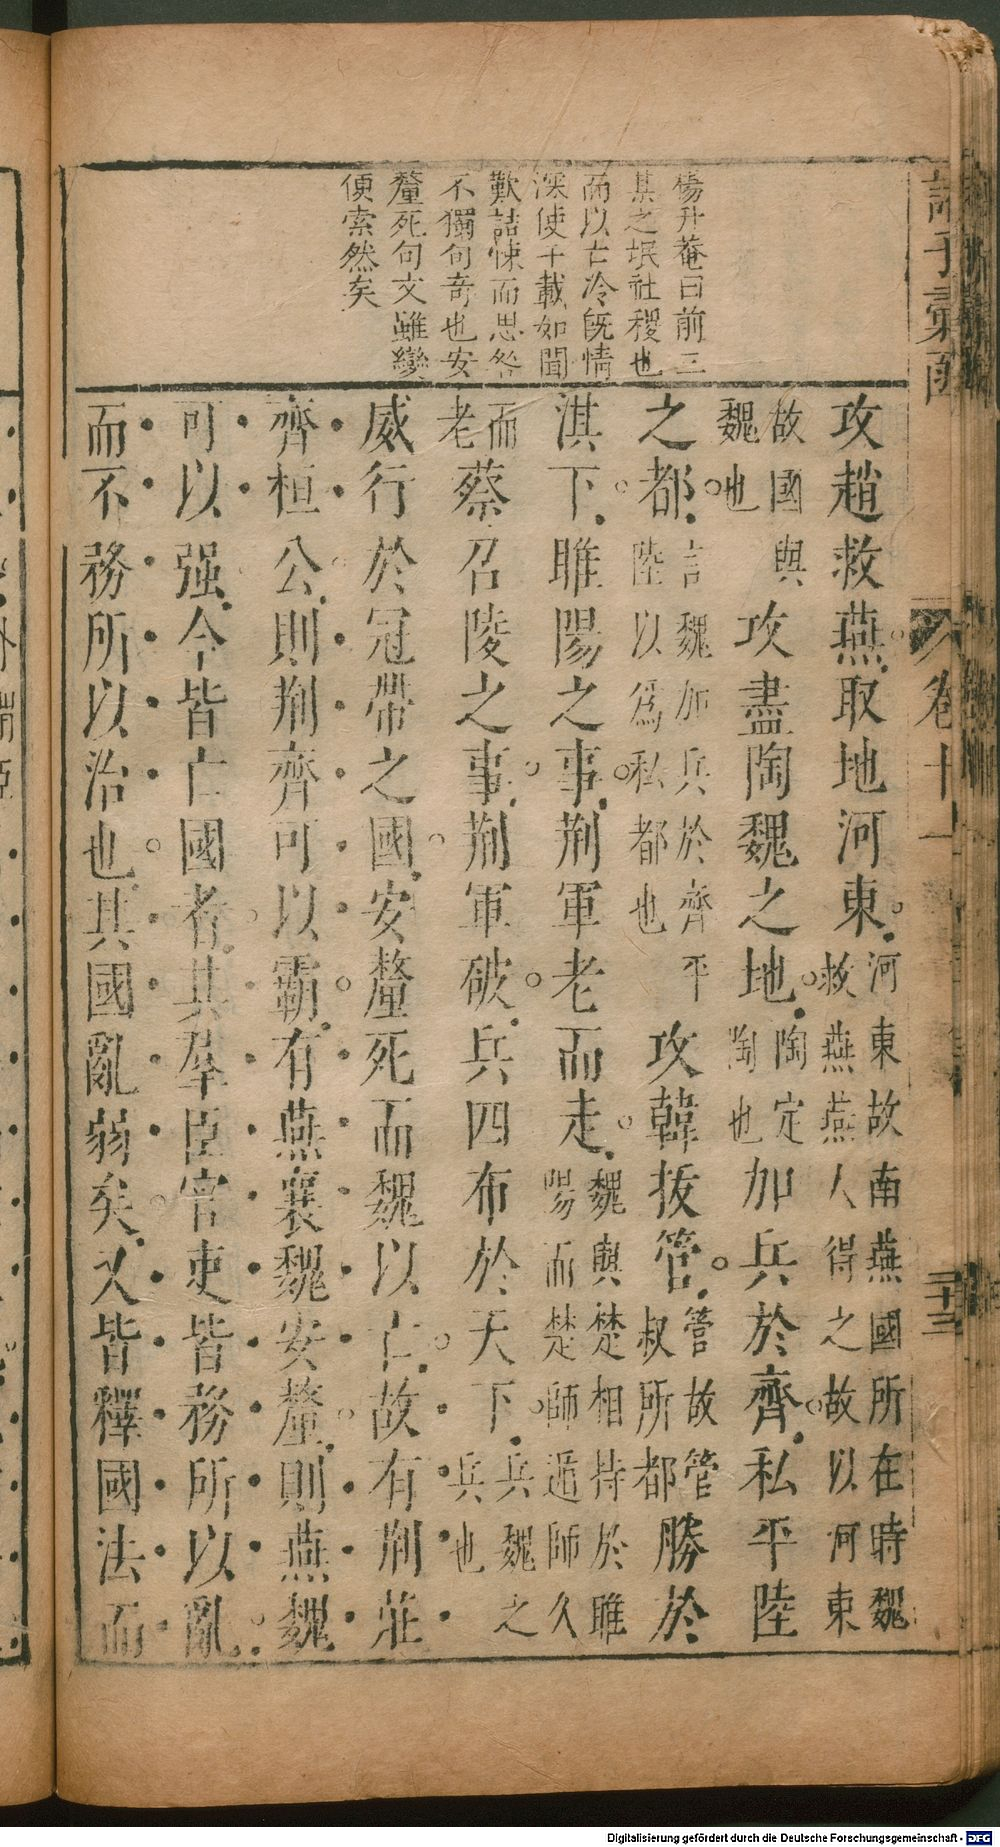 楊升菴曰前三
其之垊社稷也
而以亡冷旣情
深使千載如聞
歎詰悚而思咎
不獨句竒也安
釐死句文雖變
便索然矣
攻趙救燕取地河東河東故南燕國所在時魏
救燕燕人得之故以河東
故國與
魏也攻盡陶魏之地陶定
陶也加兵於齊私平陸
之都言魏加兵於齊平
陸以爲私都也攻韓拔管管故管
叔所都勝於
淇下睢陽之事荆軍老而走魏與楚相持於睢
陽而楚師遁師久
而
老蔡召陵之事荆軍破兵四布於天下兵魏之
兵也
威行於冠帶之國安釐死而魏以亡故有荆莊
齊桓公則荆齊可以霸有燕襄魏安釐則燕魏
可以强今皆亡國者其羣臣官吏皆務所以亂
而不務所以治也其國亂弱矣又皆釋國法而
卷十一
二十三
Digitalisierung gefördert durch die Deutsche Forschungsgemeinschaft - DFG